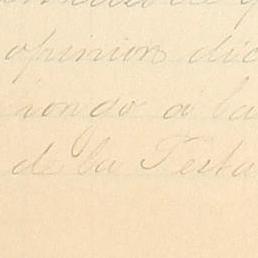 opinion dic
iongo a la
de la Testa